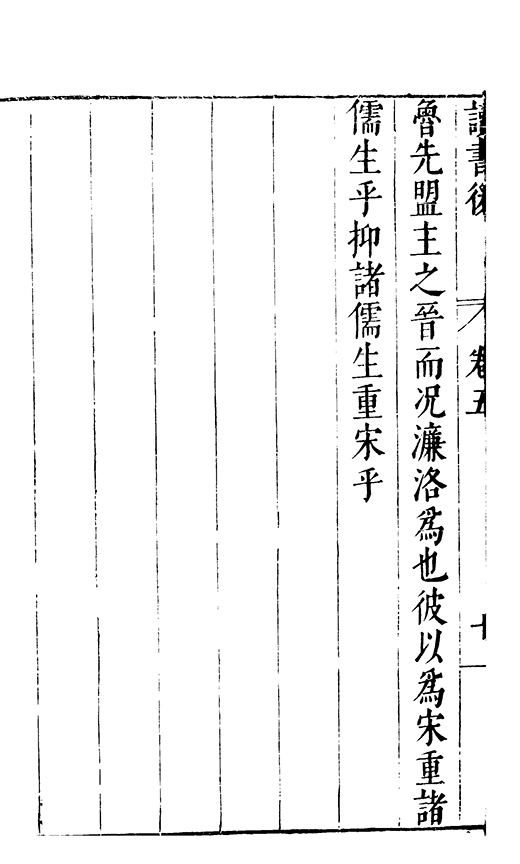 讀書後
卷五
十
魯先盟主之晉而况濂洛爲也彼以爲宋重諸
儒生乎抑諸儒生重宋乎